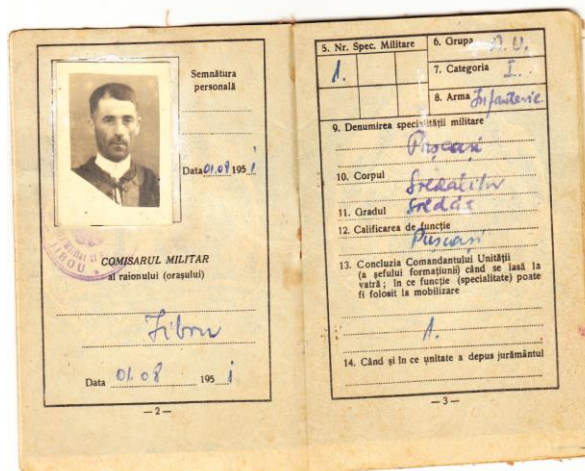 Semnătura
personală
Data 01.08 1951
COMISARUL MILITAR
al raionului (orașului)
Jibou
Data 01.08 1951
—2—
5. Nr. Spec. Militare
1.
6. Grupa A.U.
7. Categoria I.
8. Arma Infanterie
9. Denumirea specialității militare
Pușcași
10. Corpul Soldaților
11. Gradul Soldat
12. Calificarea de funcție
Pușcași
13. Concluzia Comandantului Unității
(a șefului formațiunii) când se lasă la
vatră; în ce funcție (specialitate) poate
fi folosit la mobilizare
1.
14. Când și în ce unitate a depus jurământul
—3—
JIBOU